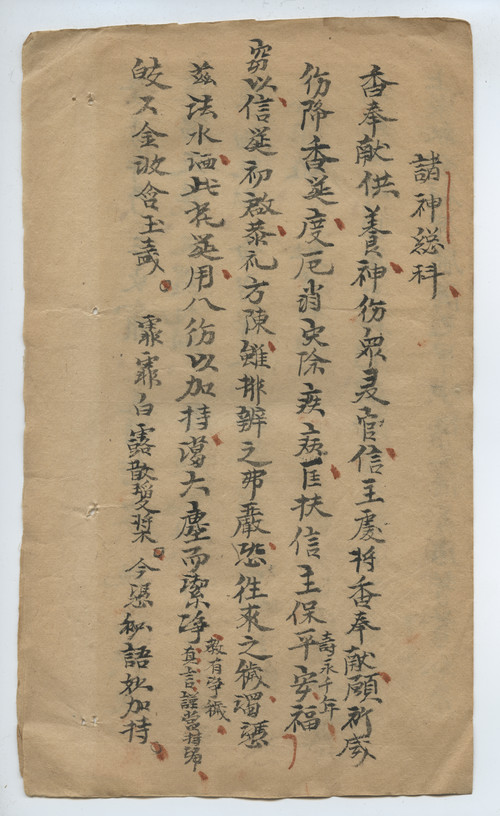 諸神総科
香奉献供養神伤衆灵官信主虔将香奉献願祈感
伤降香筵度厄消灾除疾病匡扶信主保平安福壽永千年
窃以信筵初啟恭礼方陳雖排辨之弗嚴恐往来之穢濁憑
茲法水洒此花筵用八伤以加持蕩六塵而潔净教有净穢真言謹當持誦
皎又金波含玉壽 霏霏白露散瓊漿 今憑秘語妙加持